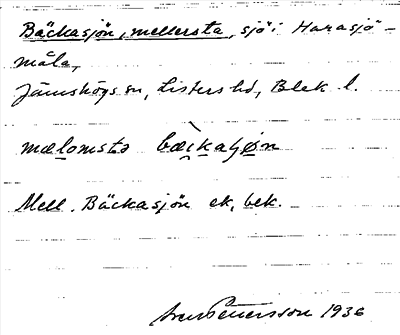 Bäckasjön, mellersta, sjö i Harasjö-
måla,
Jämshögs sn, Listers hd, Blek. l.
mælomsta bæ̀kaʃøn
Mell. Bäckasjön ek, bek.
Pettersson 1936